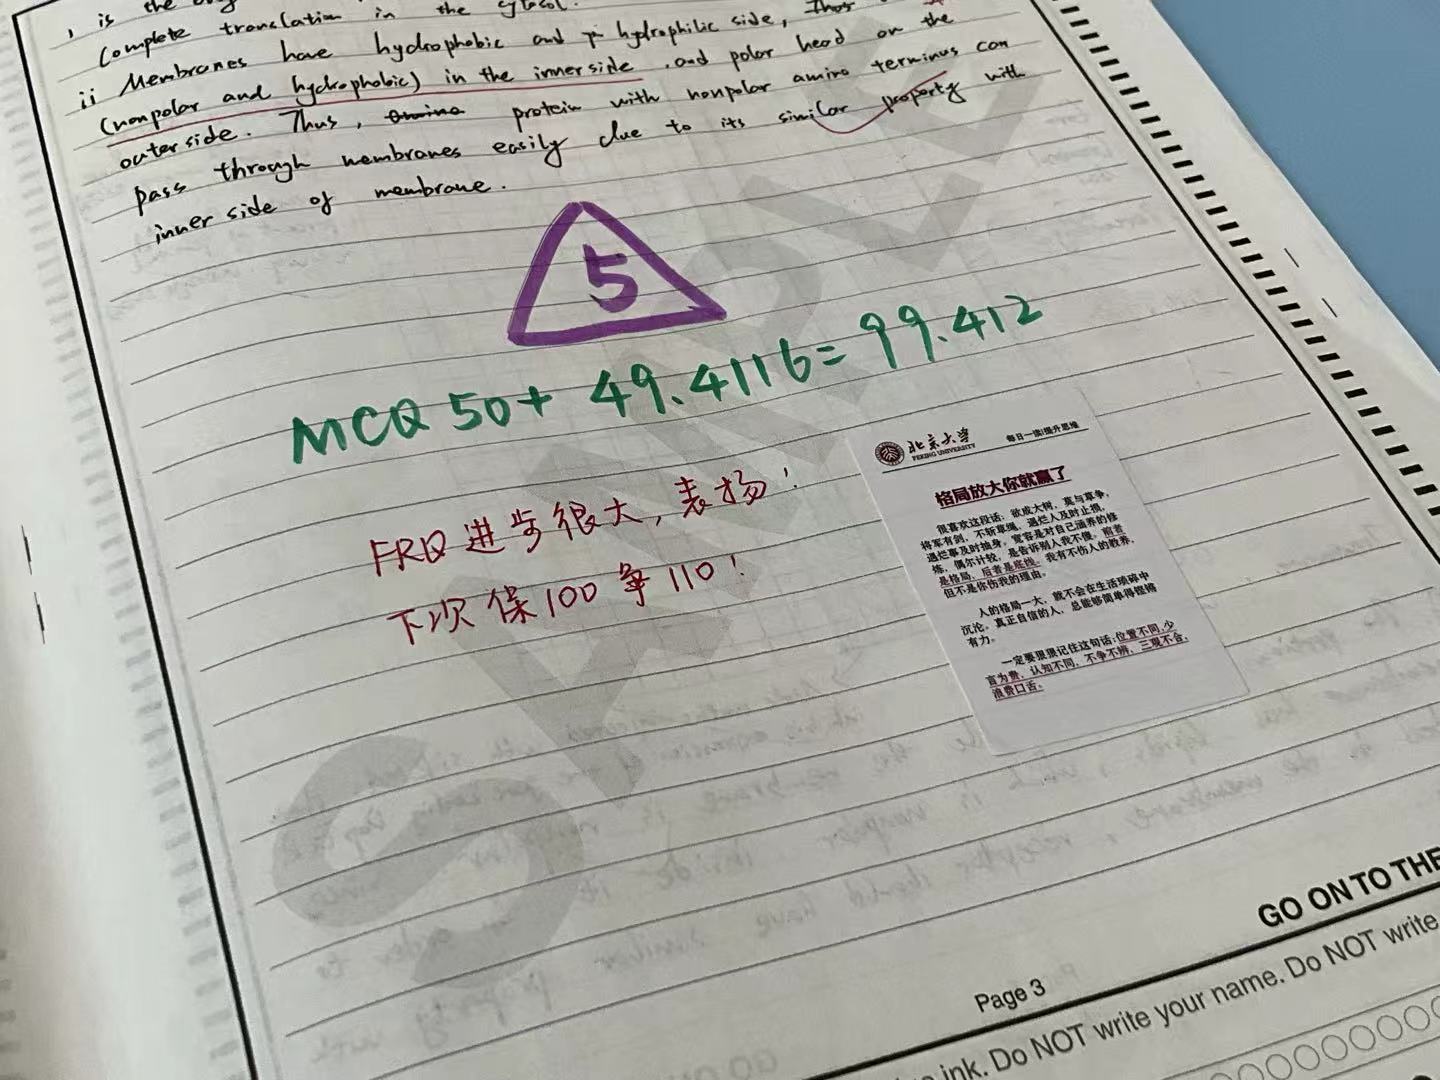 is the
complete translation in the cytosol.
ii Membranes have hydrophobic and hydrophilic side,
(nonpolar and hydrophobic) in the inner side and polar head on the
outer side. Thus, protein with nonpolar amino terminus can
pass through membranes easily due to its similar property with
inner side of membrane.
5
MCQ 50+ 49.4116=99.412
FRQ进步很大,表扬!
下次保100争110!
北京大学
PEKING UNIVERSITY
每日一读|提升思维
格局放大你就赢了
很喜欢这段话:欲成大树,莫与草争,
将军有剑,不斩草绳,遇烂人及时止损,
遇烂事及时抽身,宽容是对自己涵养的修
炼,偶尔计较,是告诉别人我不傻。前者
是格局,后者是底线。我有不伤人的教养,
但不是你伤我的理由。
人的格局一大,就不会在生活琐碎中
沉沦。真正自信的人,总能够简单得铿锵
有力。
一定要狠狠记住这句话:位置不同,少
言为贵,认知不同,不争不辨,三观不合,
浪费口舌。
SAMPLE
GO ON TO THE
Page 3
ink. Do NOT write your name. Do NOT write